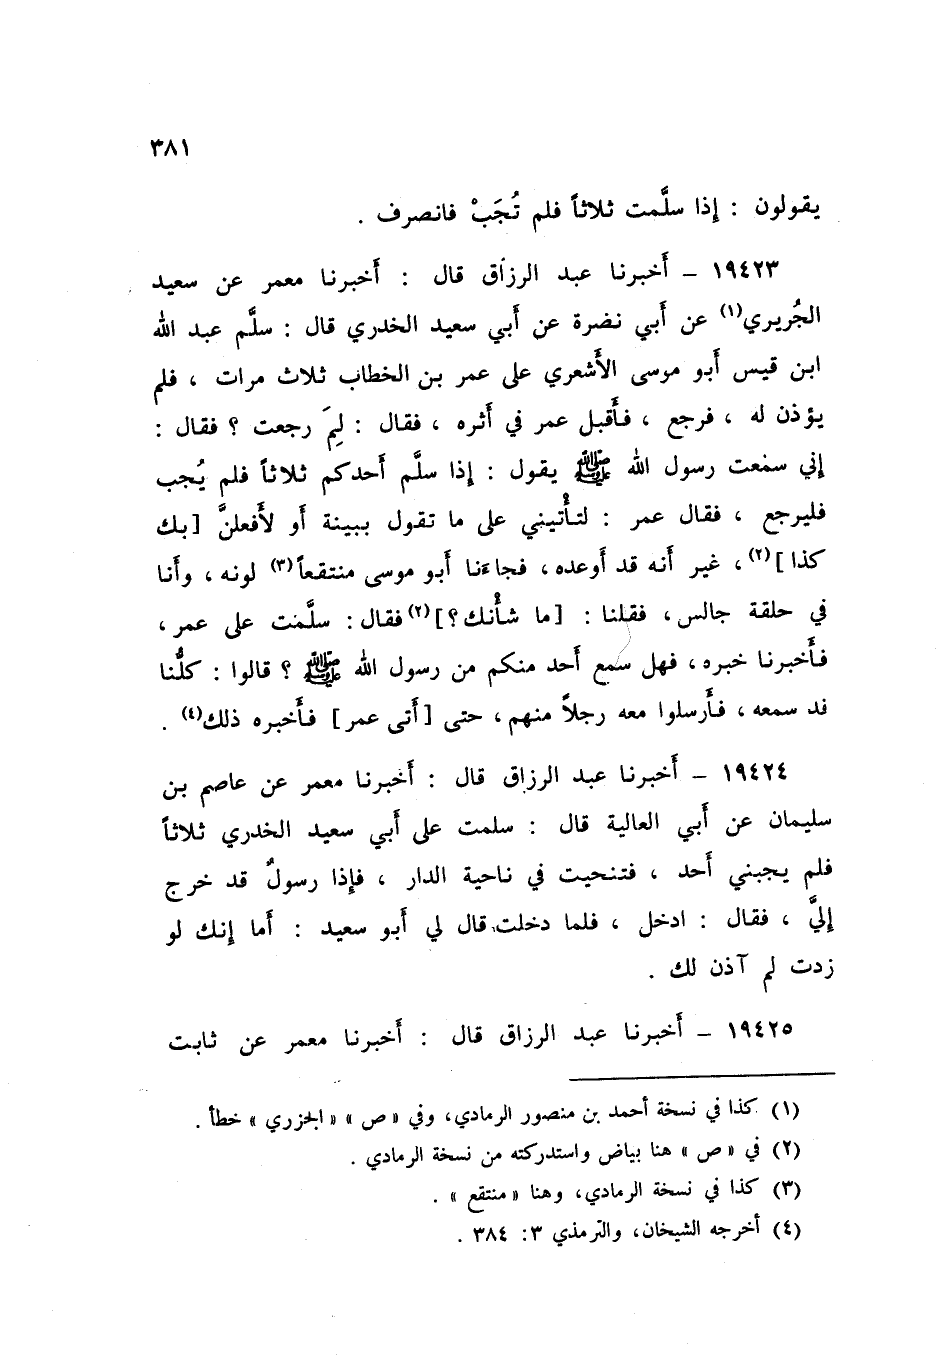 ٣٨١
يقولون : إذا سلَّمت ثلاثاً فلم تُجَبْ فانصرف .
١٩٤٢٣ – أخبرنا عبد الرزاق قال : أخبرنا معمر عن سعيد
الجُريري(١) عن أبي نضرة عن أبي سعيد الخدري قال : سلَّم عبد الله
ابن قيس أبو موسى الأشعري على عمر بن الخطاب ثلاث مرات ، فلم
يؤذن له ، فرجع ، فأقبل عمر في أثره ، فقال : لِمَ رجعت ؟ فقال :
إني سمعت رسول الله ﷺ يقول : إذا سلَّم أحدكم ثلاثاً فلم يُجب
فليرجع ، فقال عمر : لتأتيني على ما تقول ببينة أو لأفعلنَّ [بك
كذا](٢) ، غير أنه قد أوعده ، فجاءنا أبو موسى منتقعاً(٣) لونه ، وأنا
في حلقة جالس ، فقلنا : [ما شأنك؟](٢) فقال : سلَّمت على عمر ،
فأخبرنا خبره ، فهل سمع أحد منكم من رسول الله ﷺ ؟ قالوا : كلُّنا
قد سمعه ، فأرسلوا معه رجلاً منهم ، حتى [أتى عمر] فأخبره ذلك(٤) .
١٩٤٢٤ – أخبرنا عبد الرزاق قال : أخبرنا معمر عن عاصم بن
سليمان عن أبي العالية قال : سلمت على أبي سعيد الخدري ثلاثاً
فلم يجبني أحد ، فتنحيت في ناحية الدار ، فإذا رسولٌ قد خرج
إليَّ ، فقال : ادخل ، فلما دخلت قال لي أبو سعيد : أما إنك لو
زدت لم آذن لك .
١٩٤٢٥ – أخبرنا عبد الرزاق قال : أخبرنا معمر عن ثابت
(١) كذا في نسخة أحمد بن منصور الرمادي، وفي «ص» «الجزري» خطأ .
(٢) في «ص» هنا بياض واستدركته من نسخة الرمادي .
(٣) كذا في نسخة الرمادي، وهنا «منتقع» .
(٤) أخرجه الشيخان، والترمذي ٣: ٣٨٤ .